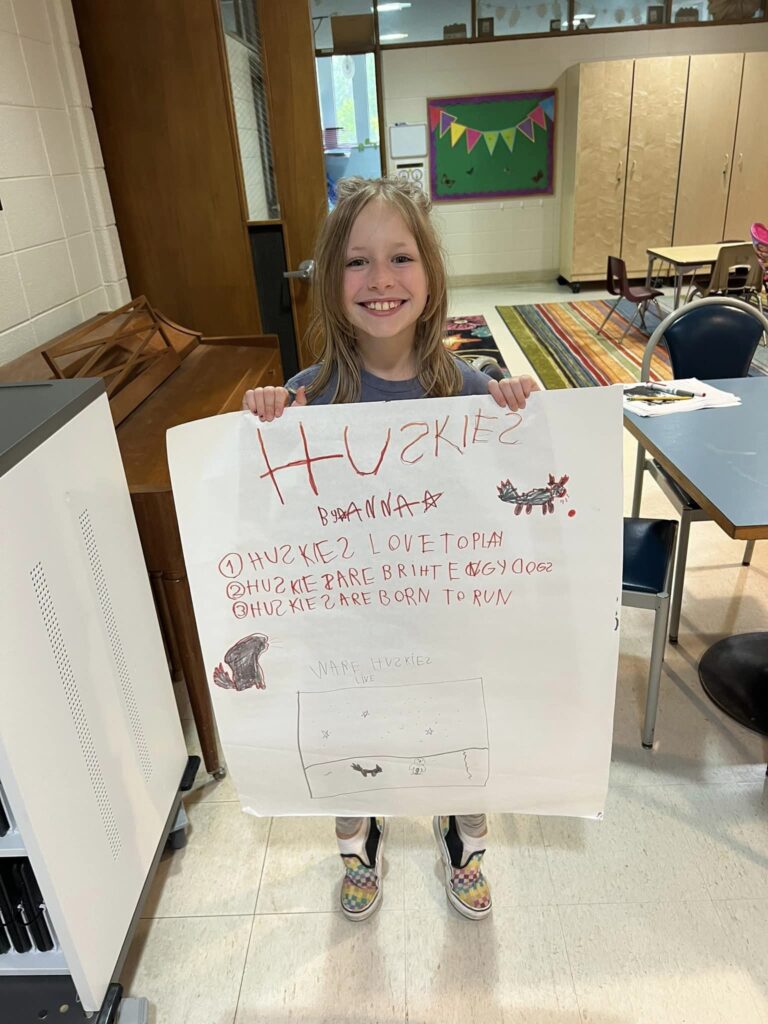 HUSKIES
By ANNA
① HUSKIES LOVE TO PLAY
② HUSKIES ARE BRIHT ENGY DOGS
③ HUSKIES ARE BORN TO RUN
WARE HUSKIES
LIVE